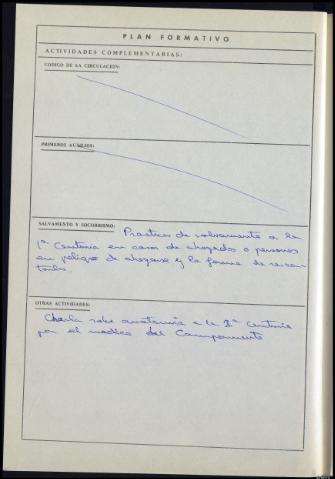 PLAN FORMATIVO
ACTIVIDADES COMPLEMENTARIAS:
CODIGO DE LA CIRCULACION:
PRIMEROS AUXILIOS:
SALVAMENTO Y SOCORRISMO: Practicas de salvamento a la
1ª Centuria en casos de ahogados o personas
en peligro de ahogarse y la forma de rescatarlos.
OTRAS ACTIVIDADES:
Charla sobre anatomia a la 1ª Centuria
por el medico del Campamento